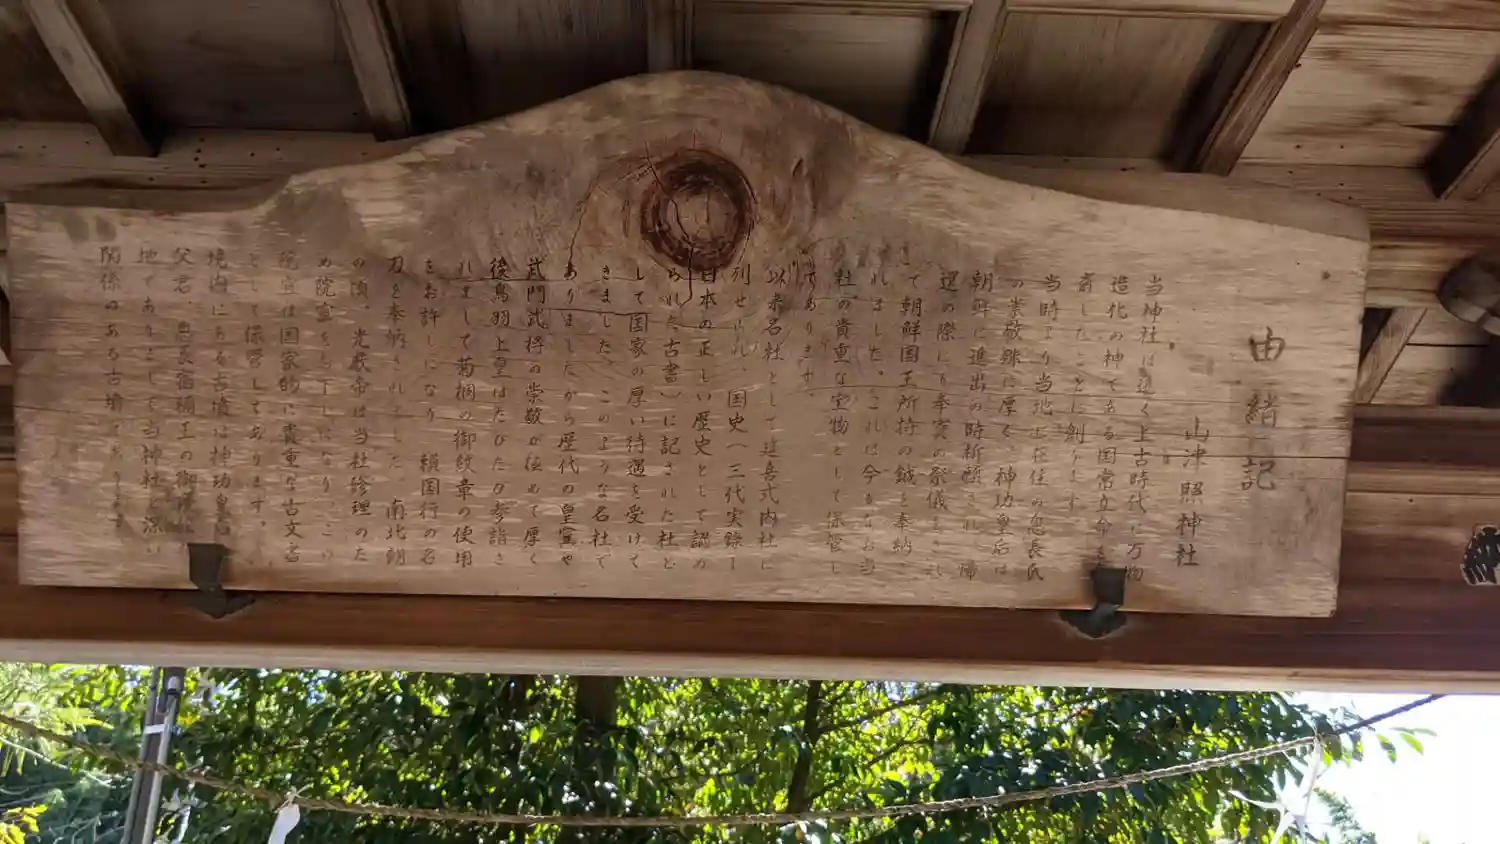 由緒記
山津照神社
当神社は遠く上古時代に万物
造化の神である国常立命を
斎したことに創ります
当時より当地に在住の息長氏
の崇敬殊に厚く、神功皇后は
朝鮮に進出の時祈願され、帰
還の際にり奉賽の祭儀をされ
て朝鮮国王所持の鉞を奉納さ
れました。これは今もなお当
社の貴重な宝物として保管し
てあります。
以来名社として延喜式内社に
列せられ、国史へ三代実録し
日本の正しい歴史として認め
られた古書)に記された社と
して国家の厚い待遇を受けて
きました、このような名社で
ありましたから歴代の皇室や
武門武将の崇敬が極めて厚く
後鳥羽上皇はたびたび参詣さ
れまして菊桐の御紋章の使用
をお許しになり、頼国行の名
刀を奉納されました。南北朝
の頃、光厳帝は当社修理のた
め院宣を下しになり、この
院宣は国家的に貴重な古文書
として保管してあります。
境内にある古墳は神功皇后
父君、息長宿禰王の御陵
地でありまして当神社と深い
関係のある古墳であります